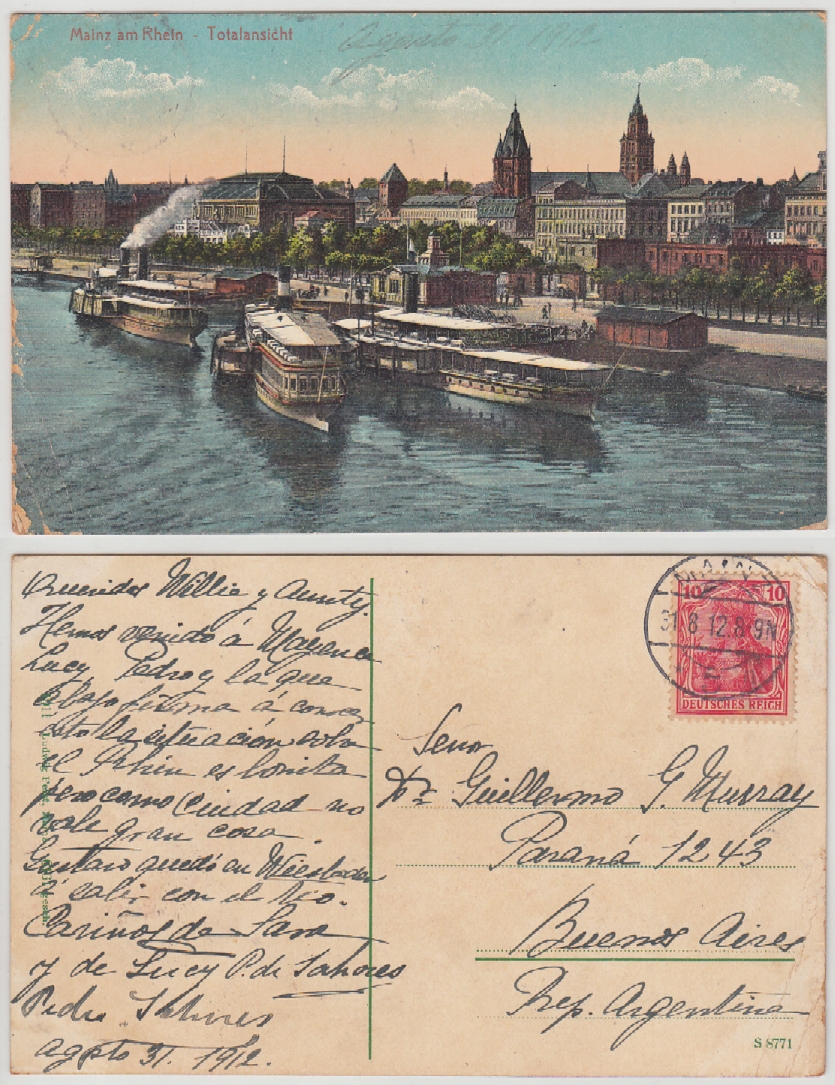 Mainz am Rhein - Totalansicht
Agosto 31 1912
Queridos Willie y Aunty.
Hemos venido á Mayence
Lucy Pedro y la que
abajo firma á conocer
esto la situación sobre
el Rhin es bonita
pero como Ciudad no
vale gran cosa.
Gustavo quedó en Wiesbaden
á salir con el tio.
Cariños de Sara
y de Lucy P. de Sahores
Pedro Sahores
Agosto 31. 1912.
MAINZ
31.8.12.8-9N
10 10
DEUTSCHES REICH
Señor
Dr Guillermo G. Murray
Paraná 1243
Buenos Aires
Rep. Argentina
S 8771